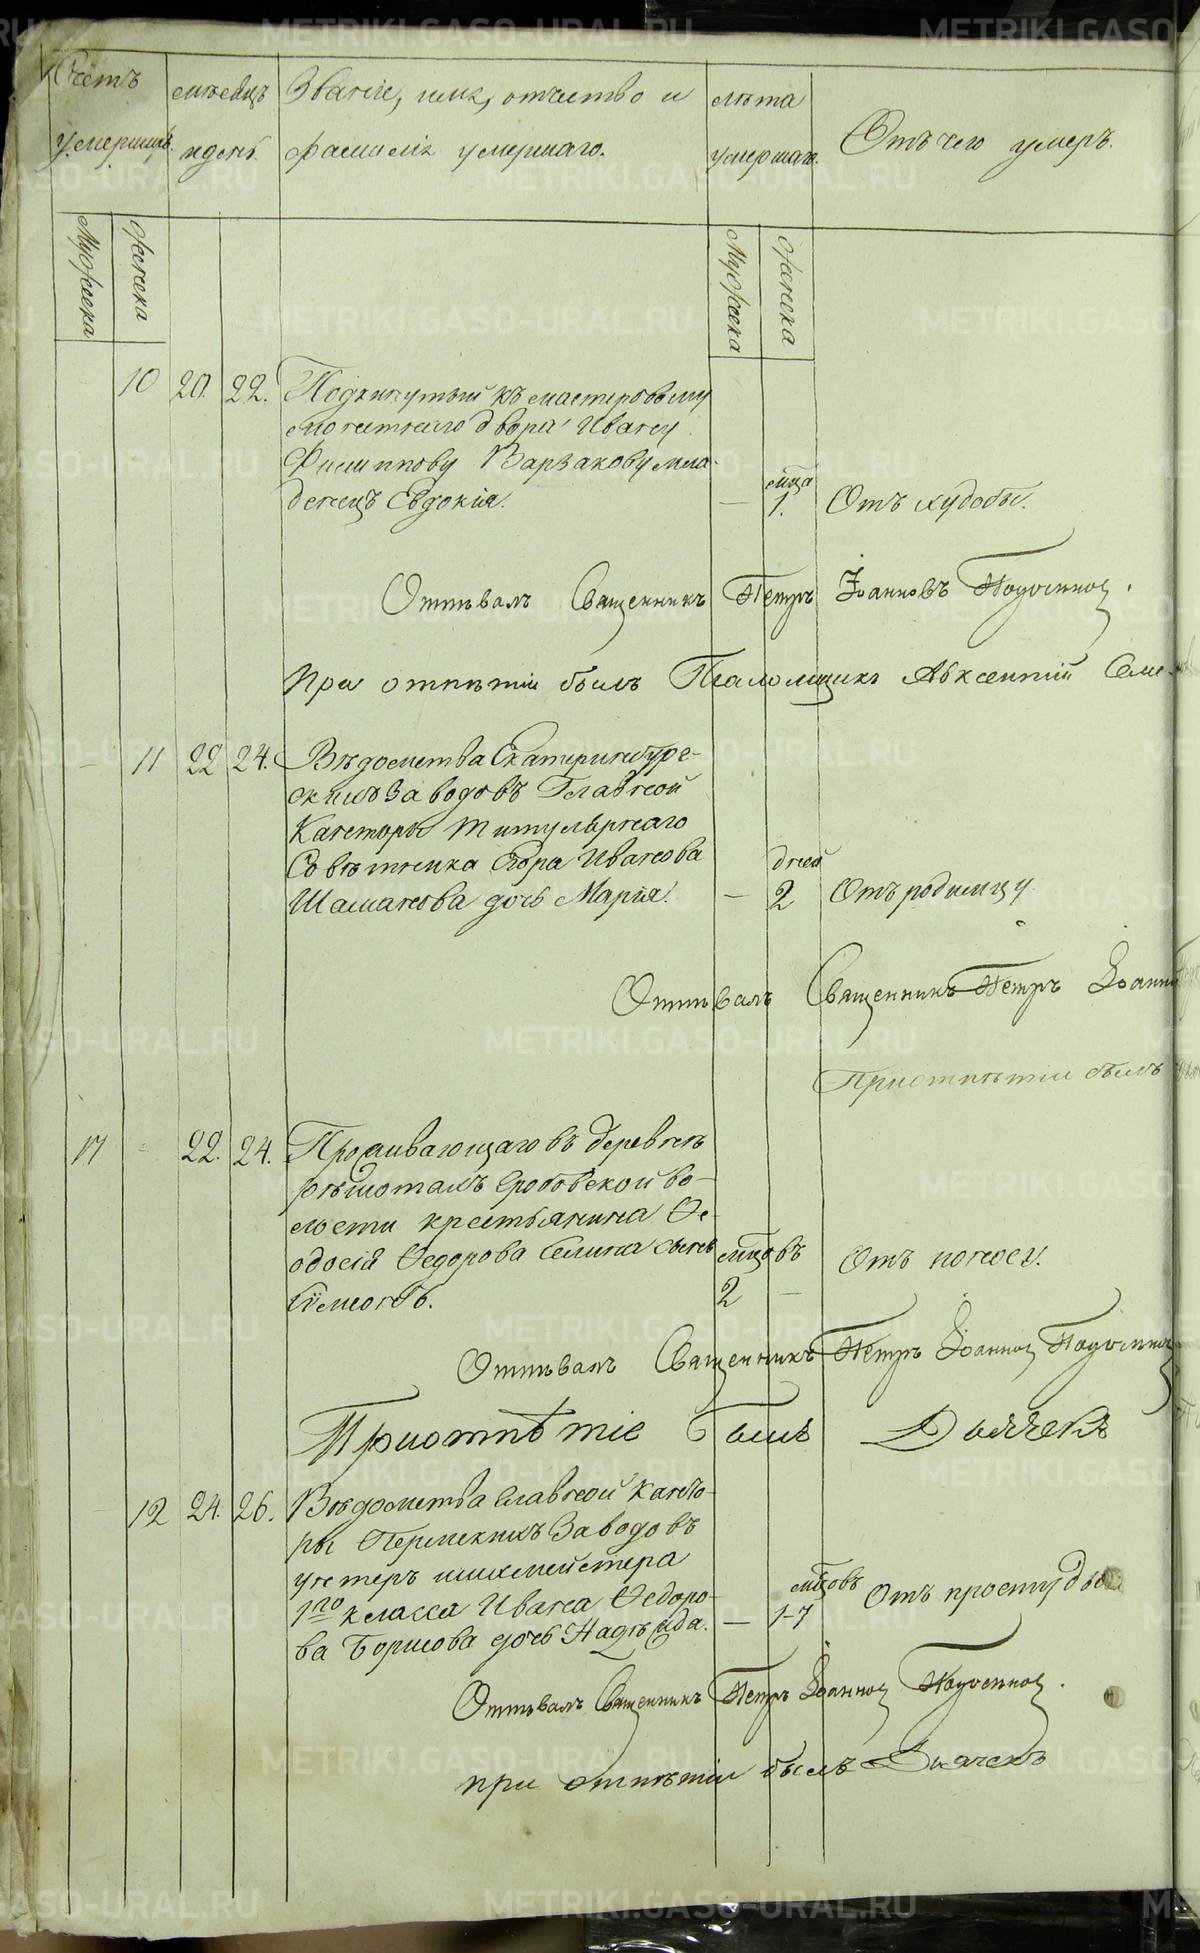 Счетъ умершихъ.
мѣсяцъ и день.
Званіе, имя, отчество и
фамилія умершаго.
лѣта умершаго.
Отъ чего умеръ.
Мужеска
Женска
Мужеска
Женска
10 20. 22. Подкинутый къ мастеровому
монетнаго двора Ивану
Филиппову Варзакову мла-
денецъ Евдокія. — мца 1. Отъ худобы.
Отпѣвалъ Священникъ Петръ Іоанновъ
При отпѣтіи былъ Псаломщикъ Авксентій
— 11 22 24. Вѣдомства Екатеринбург-
скихъ Заводовъ Главной
Конторы Титулярнаго
Совѣтника Егора Иванова
Шаманова дочь Марія. — дней 2 Отъ родимцу
Отпѣвалъ Священникъ Петръ
При отпѣтіи былъ
17 - 22. 24. Проживающаго въ деревнѣ
Рѣшотахъ Гробовской во-
лости крестьянина Ѳе-
одосія Ѳедорова сынъ
Симеонъ. мцовъ 2 — Отъ поносу.
Отпѣвалъ Священникъ Петръ
При отпѣтіе былъ Дьячекъ
— 12 24. 26. Вѣдомства Главной Конто-
ры Пермскихъ Заводовъ
унтеръ шихмейстера
1го класса Ивана Ѳедоро-
ва Борисова дочь Надѣжда. — мцовъ 1-7 Отъ простуды
Отпѣвалъ Священникъ Петръ
при отпѣтіи былъ Дьячекъ
METRIKI.GASO-URAL.RU